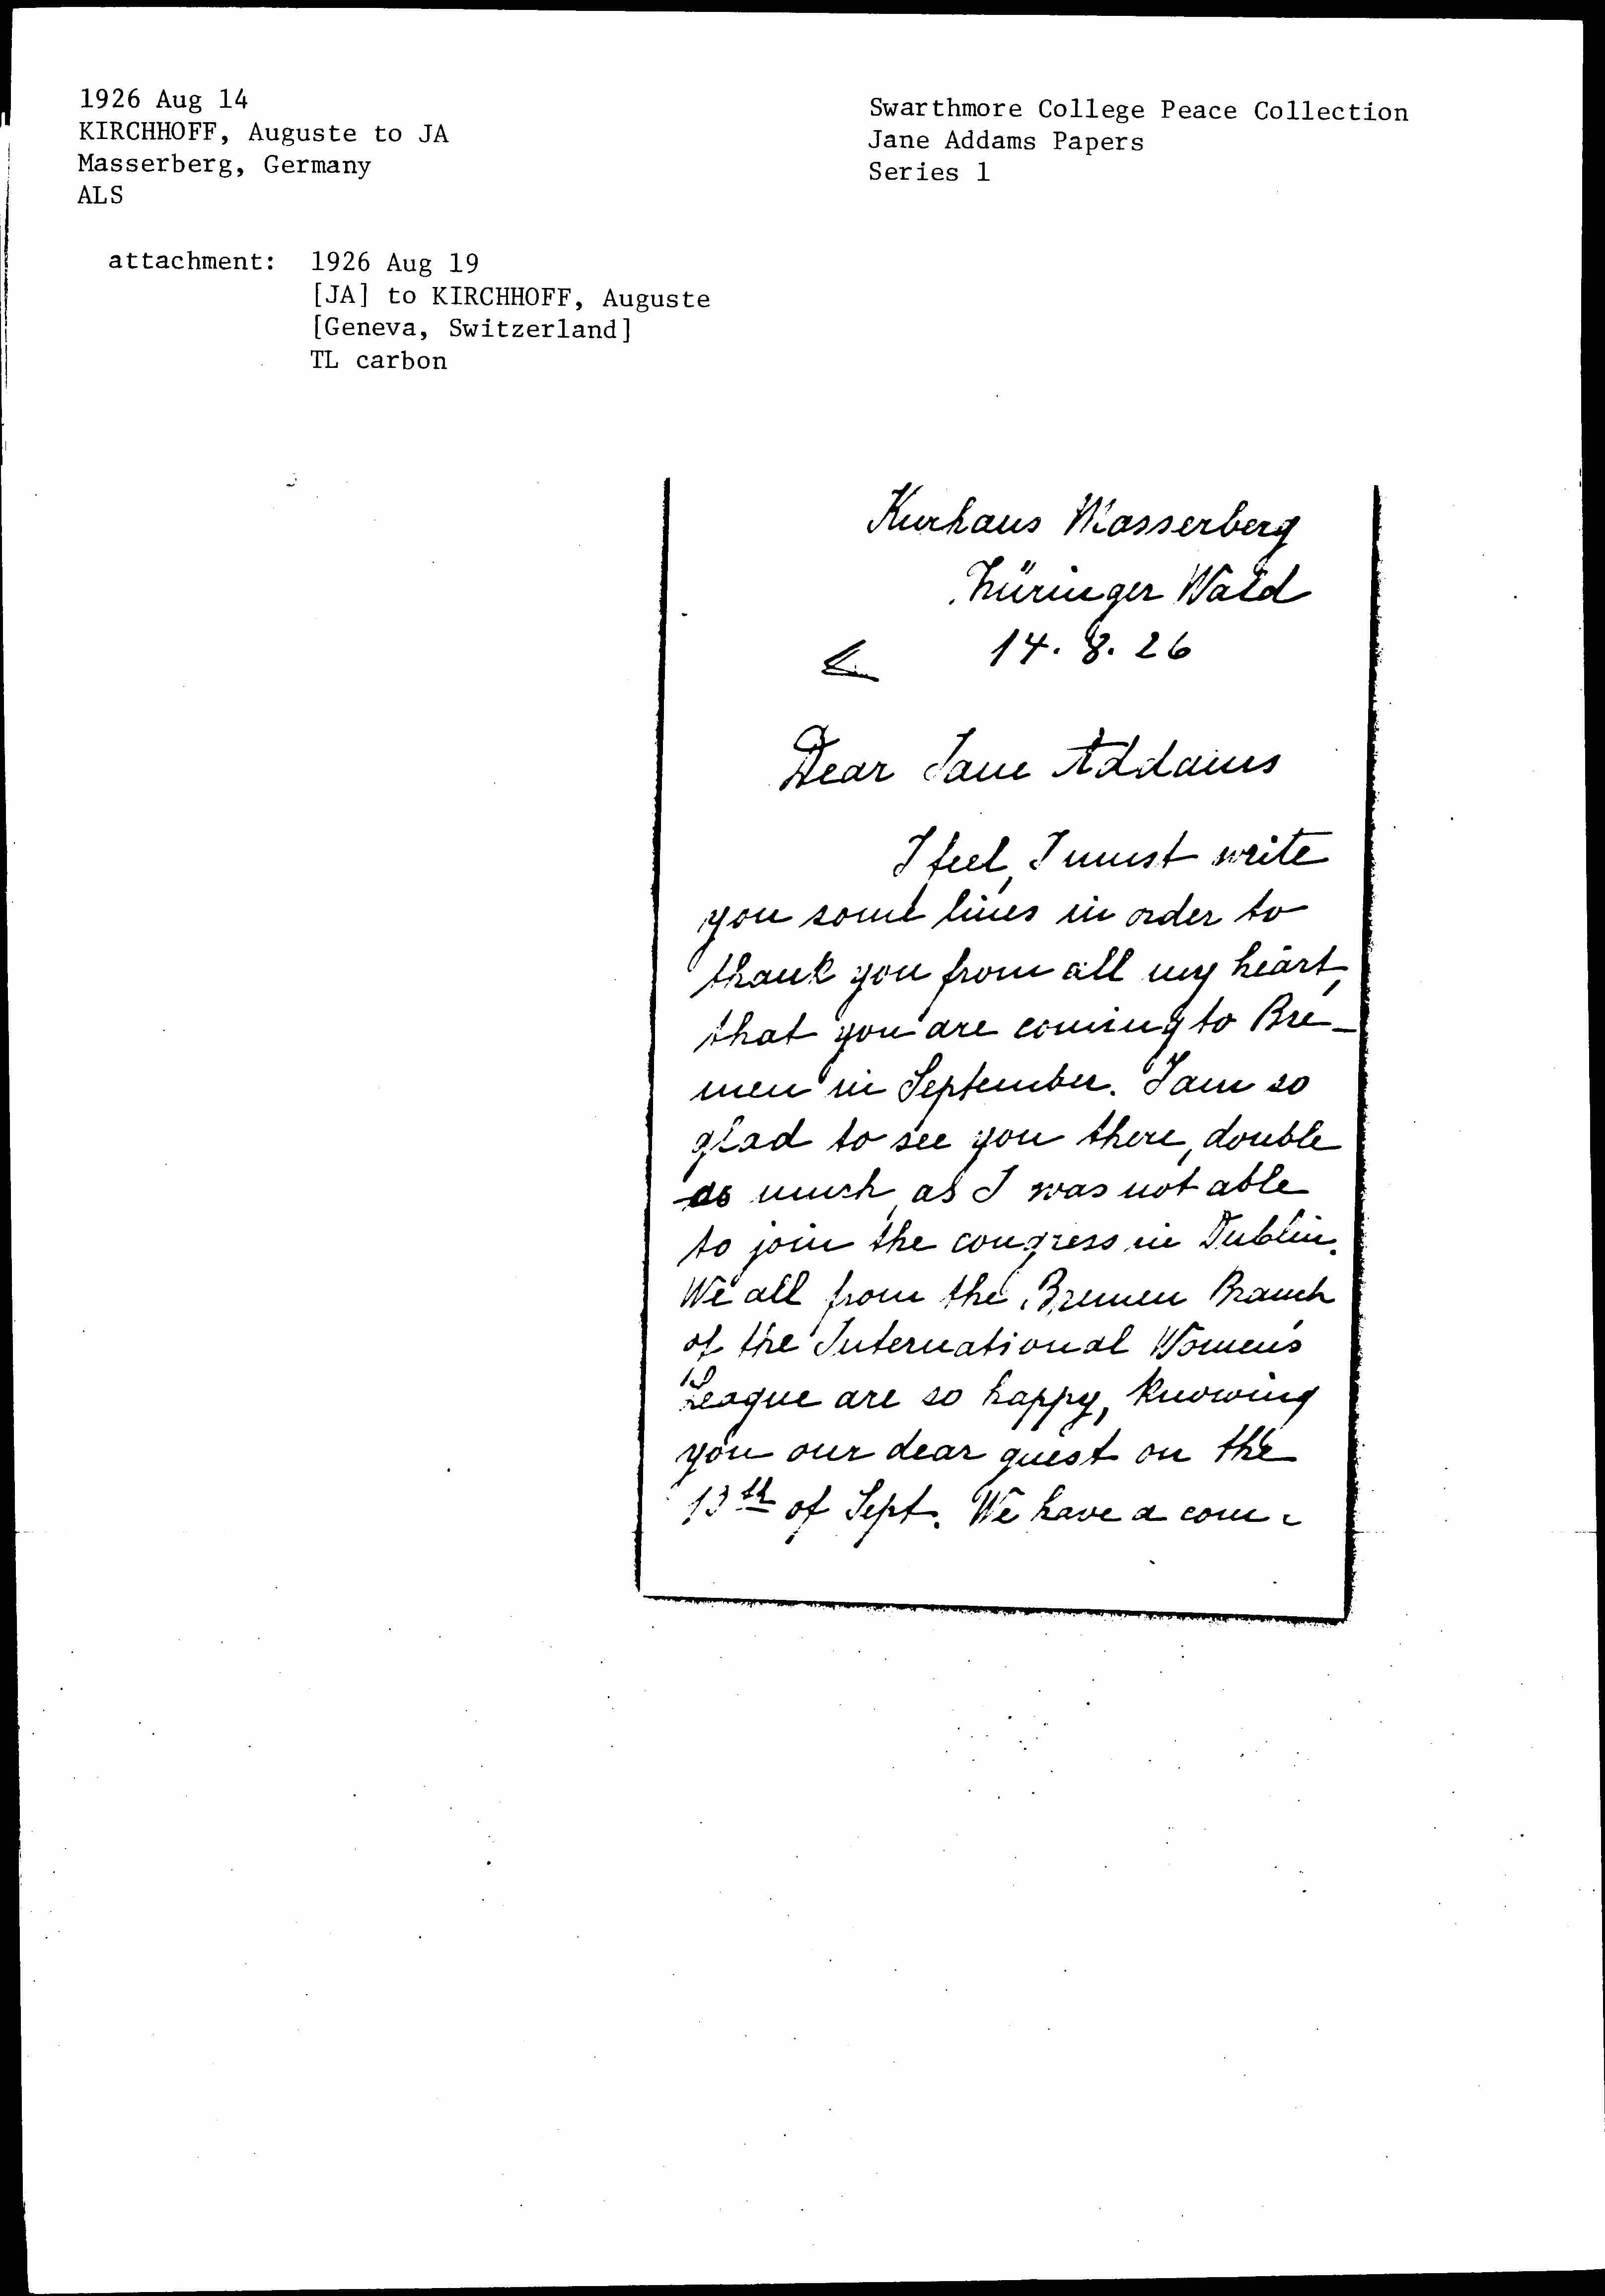 1926 Aug 14
KIRCHHOFF, Auguste to JA
Masserberg, Germany
ALS
Swarthmore College Peace Collection
Jane Addams Papers
Series 1
attachment: 1926 Aug 19
[JA] to KIRCHHOFF, Auguste
[Geneva, Switzerland]
TL carbon
Kurhaus Masserberg
Thüringer Wald
14. 8. 26
Dear Jane Addams
I feel, I must write
you some lines in order to
thank you from all my heart,
that you are coming to Bre-
men in September. I am so
glad to see you there, double
as much, as I was not able
to join the congress in Dublin.
We all from the Bremen Branch
of the International Women's
League are so happy, knowing
you our dear guest on the
13th of Sept. We have a com-